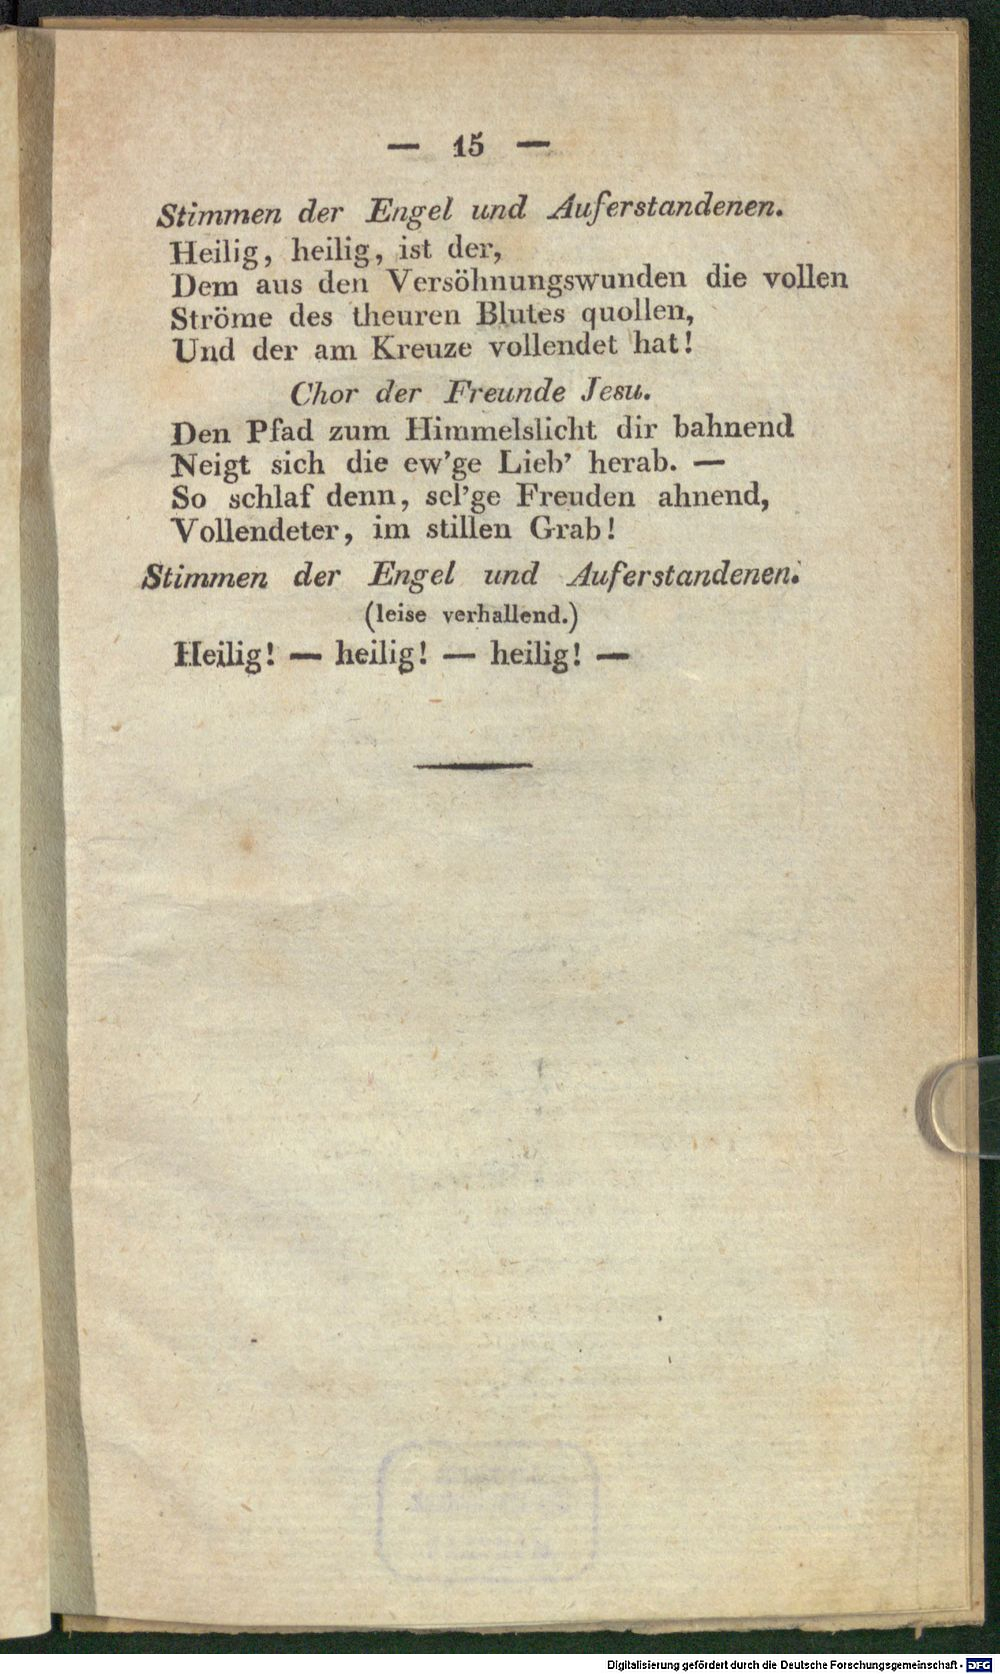 — 15 —
Stimmen der Engel und Auferstandenen.
Heilig, heilig, ist der,
Dem aus den Versöhnungswunden die vollen
Ströme des theuren Blutes quollen,
Und der am Kreuze vollendet hat!
Chor der Freunde Jesu.
Den Pfad zum Himmelslicht dir bahnend
Neigt sich die ew'ge Lieb' herab. —
So schlaf denn, sel'ge Freuden ahnend,
Vollendeter, im stillen Grab!
Stimmen der Engel und Auferstandenen.
(leise verhallend.)
Heilig! — heilig! — heilig! —
Digitalisierung gefördert durch die Deutsche Forschungsgemeinschaft - DFG